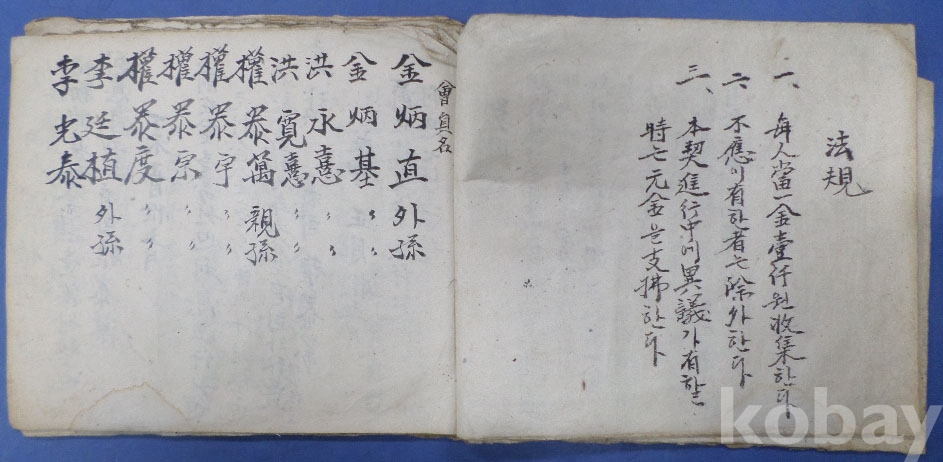 法規
一、每人當一金壹仟원收集한다
二、不應이有한者는除外한다
三、本契進行中에異議가有할
時는元金을支拂한다
會員名
金炳直 外孫
金炳基 〃 〃
洪永憙 〃 〃
洪寬憙 〃 〃
權泰萬 親孫
權泰宇 〃 〃
權泰宗 〃 〃
權泰度 〃 〃
李廷植 外孫
李光泰
kobay